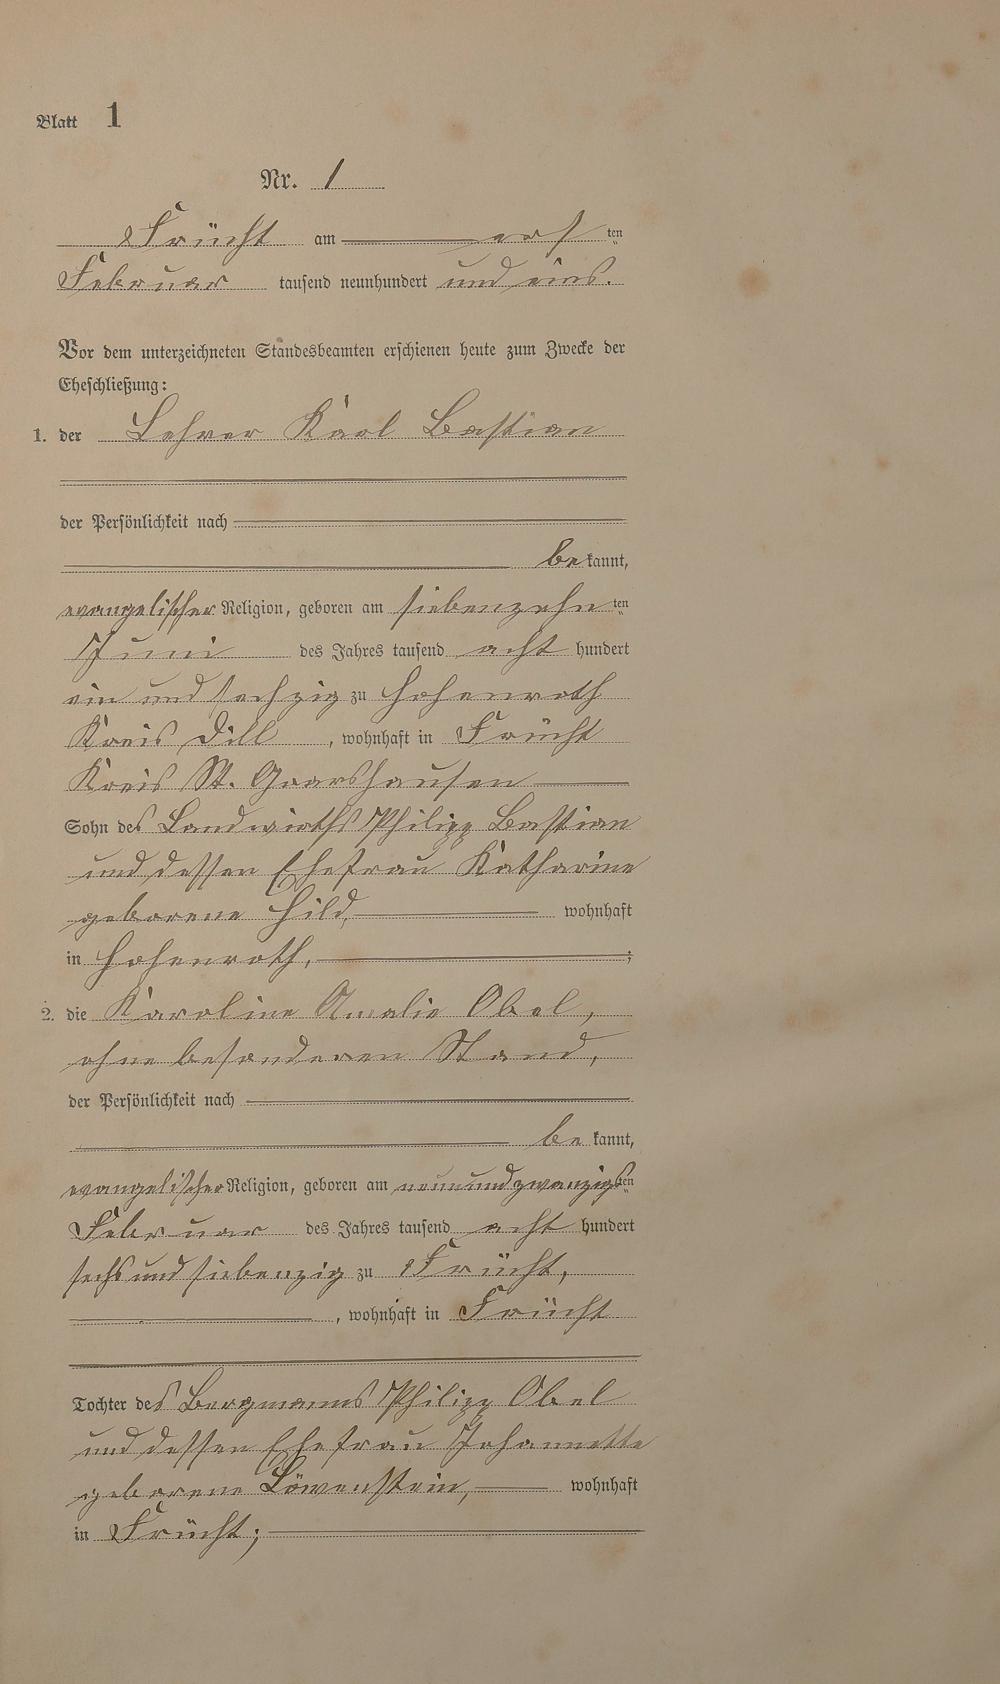 Blatt 1
Nr. 1
Frücht am ersten
Februar tausend neunhundert und eins.
Vor dem unterzeichneten Standesbeamten erschienen heute zum Zwecke der
Eheschließung:
1. der Lehrer Karl Bastian
der Persönlichkeit nach
bekannt,
evangelischer Religion, geboren am siebenzehnten
Juni des Jahres tausend acht hundert
ein und sechzig zu Hohenroth
Kreis Dill, wohnhaft in Frücht
Kreis St. Goarshausen
Sohn des Landwirths Philipp Bastian
und dessen Ehefrau Katharine
geborene Hild, wohnhaft
in Hohenroth, ;
2. die Karoline Amalie Obel,
ohne besonderen Stand,
der Persönlichkeit nach
bekannt,
evangelischer Religion, geboren am neunundzwanzigsten
Februar des Jahres tausend acht hundert
sechs und siebenzig zu Frücht,
, wohnhaft in Frücht
Tochter des Bergmanns Philipp Obel
und dessen Ehefrau Johannette
geborene Löwenstein, wohnhaft
in Frücht;